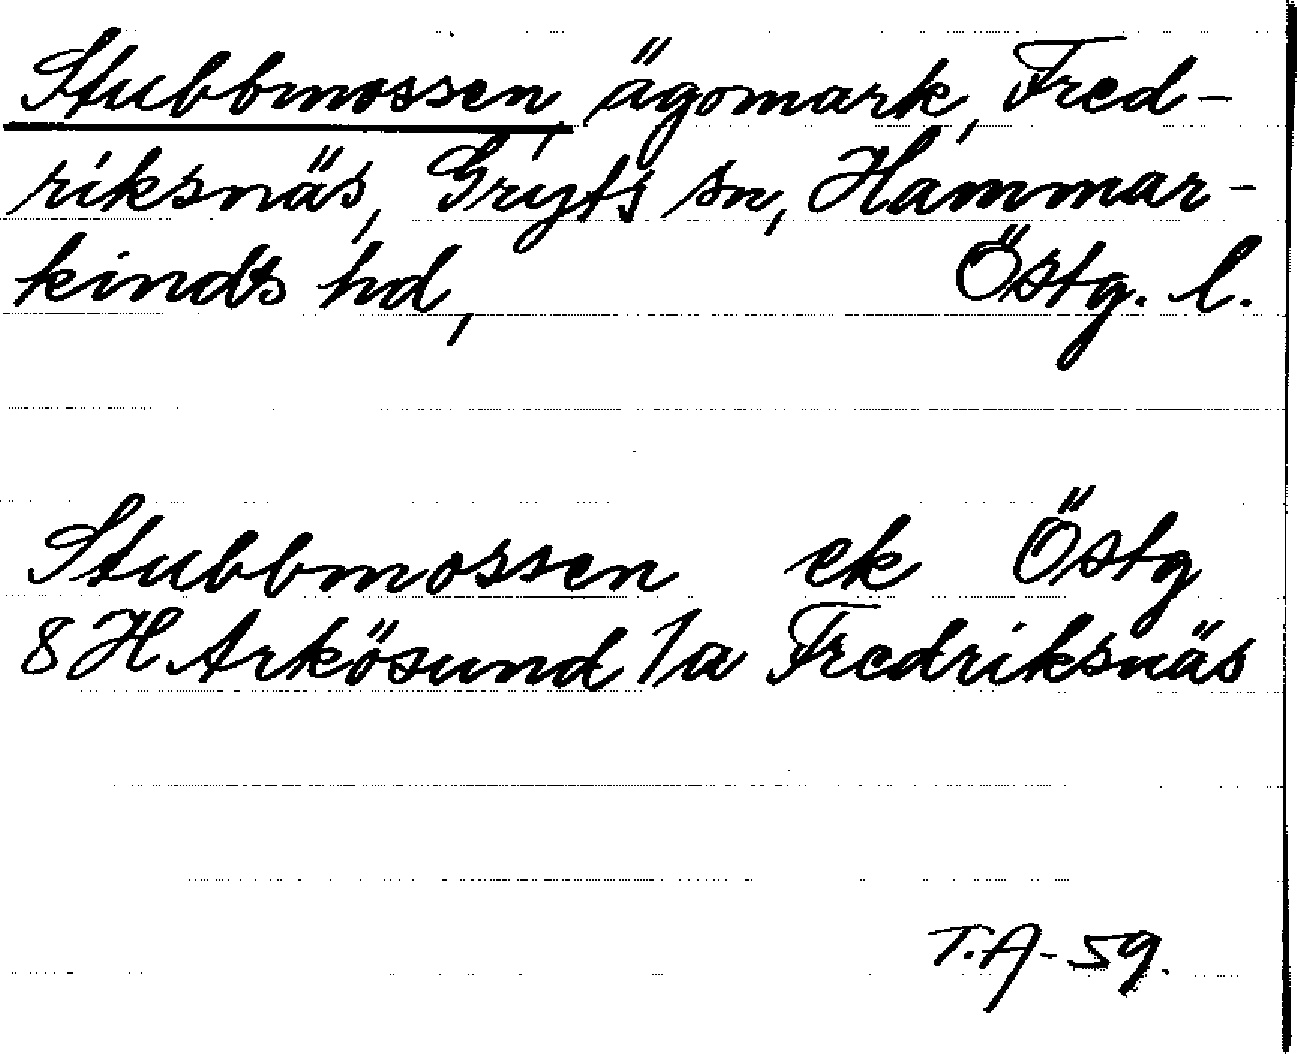 Stubbmossen, ägomark, Fred-
riksnäs, Gryts sn, Hammar-
kinds hd, Östg. l.
Stubbmossen ek Östg
8 H Arkösund 1a Fredriksnäs
T.A-59.